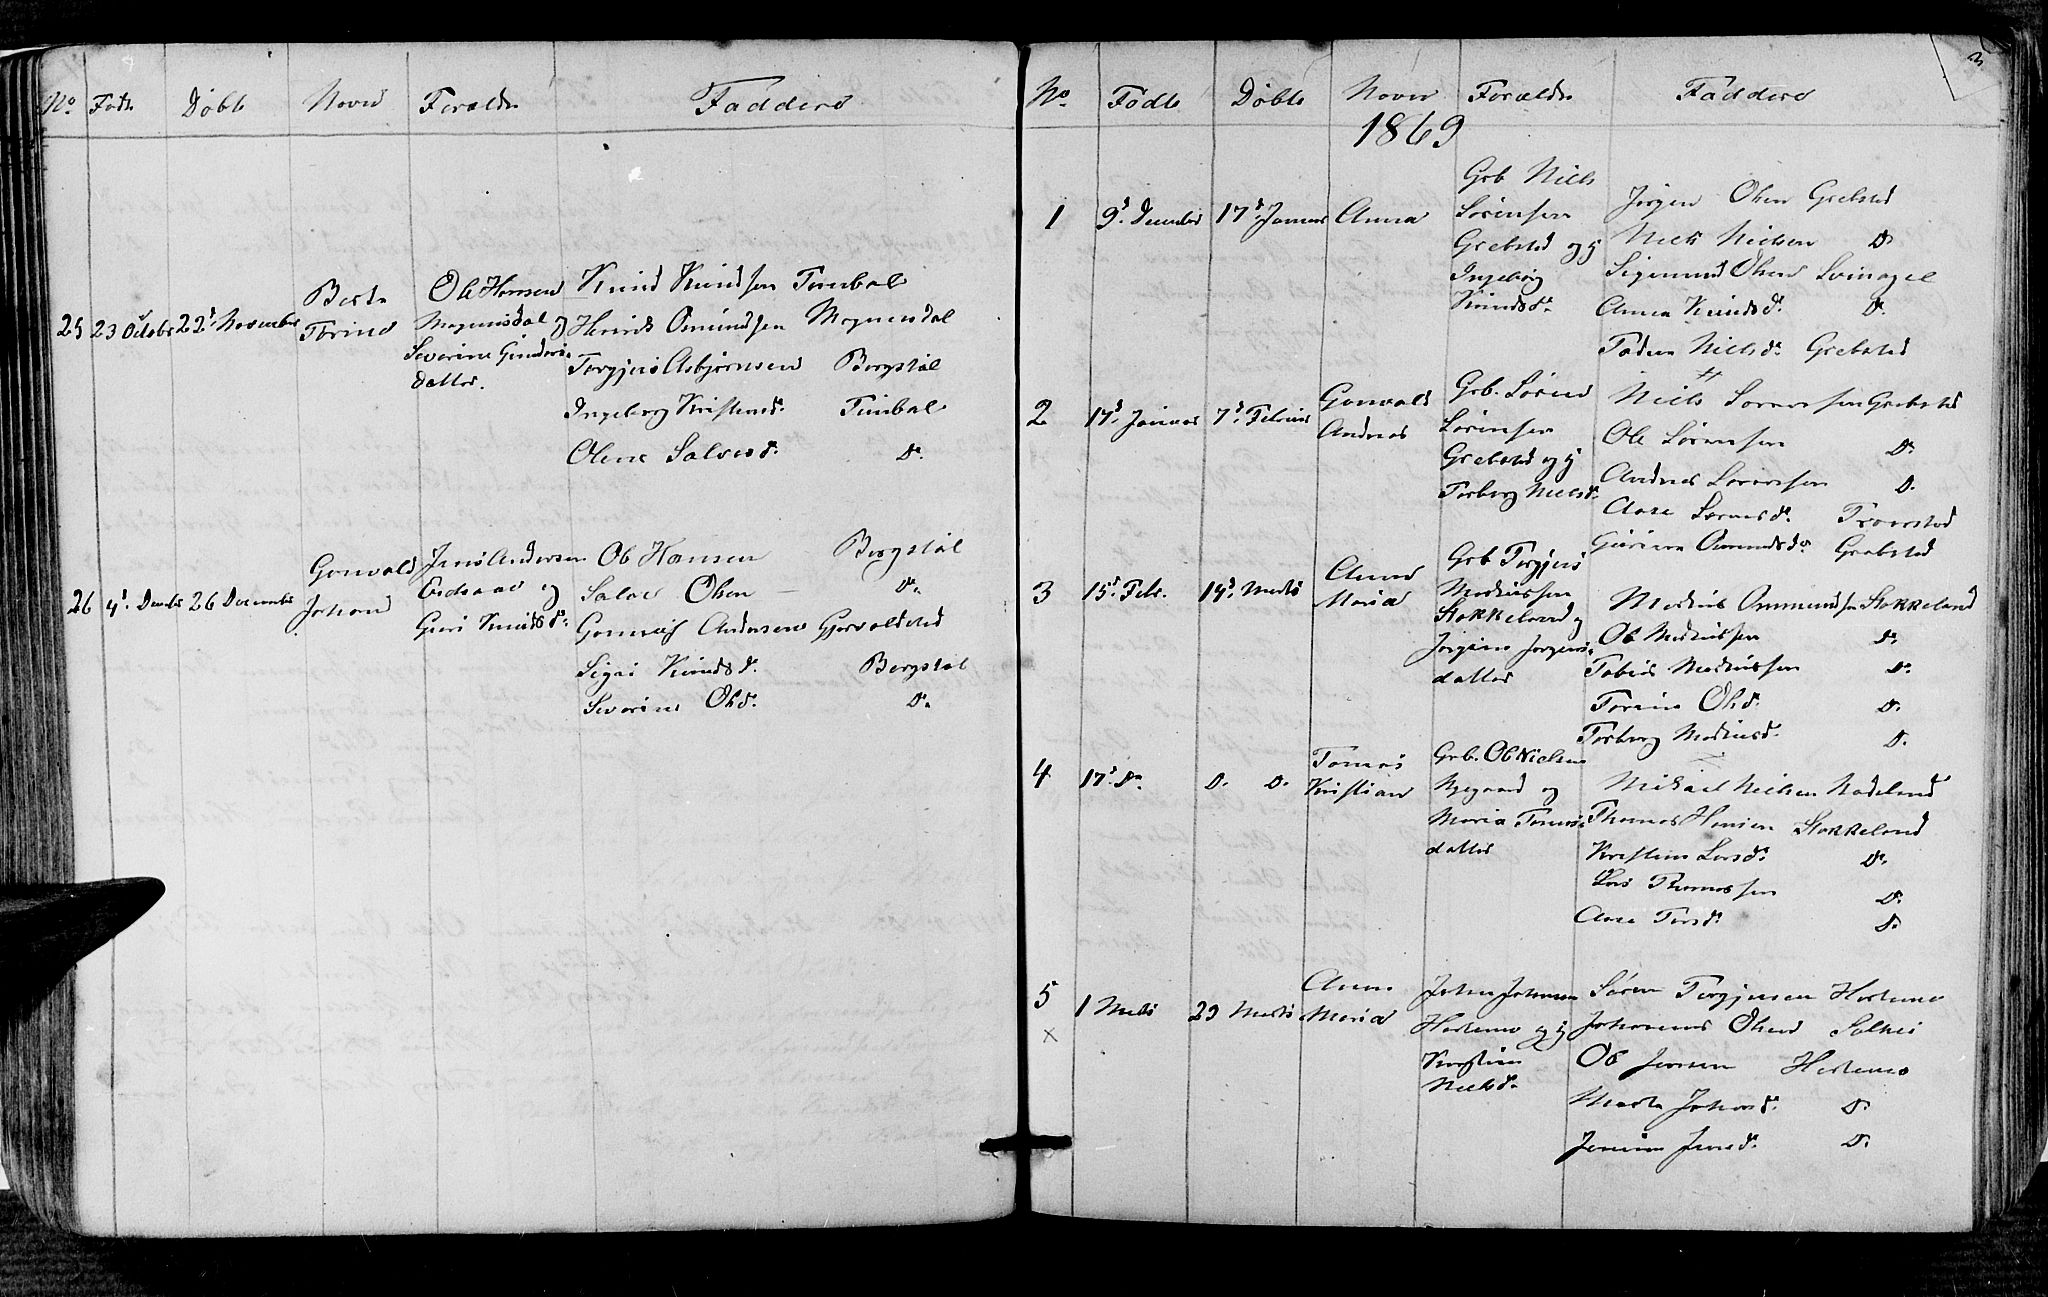 No Fødte Døbte Navn Foræld Faddere
25 23 October 22d November
Berte
Torine
Ole Hansen
Magnusdal og
Severine Gunders
datter.
Knud Knudsen Tunbal
Henrik Omundsen Magnusdal
Torgjus Asbjørnsen Bergstøl
Ingeborg Kristensd. Tunbal
Olene Salvesd. Do.
26 4d Decebr 26 December
Gonvald
Johan
Jens Andersen
og
Guri Knudsd.
Ole Hansen Bergstøl
Salve Olsen Do.
Andersen
Sigri Knudsd. Bergstøl
Severine Olsd. Do.
3
No Fødte Døbte Navn Forældre Faddere
1869
1 9d December 17d Januar Anna
Grb Niels
Sørensen
Grebsted og
Ingebörg
Knudsd.
Jørgen Olsen Grebsted
Niels Nielsen Do
Sigmund Olsen Svinagel
Anna Knudsd. Do.
Nielsd. Grebsted
2 17d Januar 7d Februar
Gonvald
Andreas
Grb. Søren
Sørensen
Grebsted og
Torborg Nielsd.
Niels Sørensen Grebsted
Ole Sørensen Do.
Andreas Sørensen D.
Aase Sørensd. Tronstad
Omundsd. Grebsted
3 15d Febr. 14d Marts
Anne
Maria
Grb Torgjus
Madiussen
Stokkeland og
Jørgine Jørgens
datter
Madius Ommundsen Stokkeland
Ole Madiussen Do.
Tobias Madiussen Do.
Torine Olsd. D.
Torborg Madiusd. D.
4 17d Do. D. D.
Tomas
Kristian
Grb. Ole Nielsen
og
Maria Tomas
datter
Mikael Nielsen
Thomas Hansen Stokkeland
Kristine Larsd. Do.
Lars Thomassen D.
Aase Torsd. D.
5 1 Marts 29 Marts
x
Anne
Maria
John Johnsen
Hortemo og
Kirstine
Nielsd.
Søren Torgjusen Hortemo
Johannes Olsen
Ole Jensen Hortemo
Marte Johnsd. D.
Jensd. D.